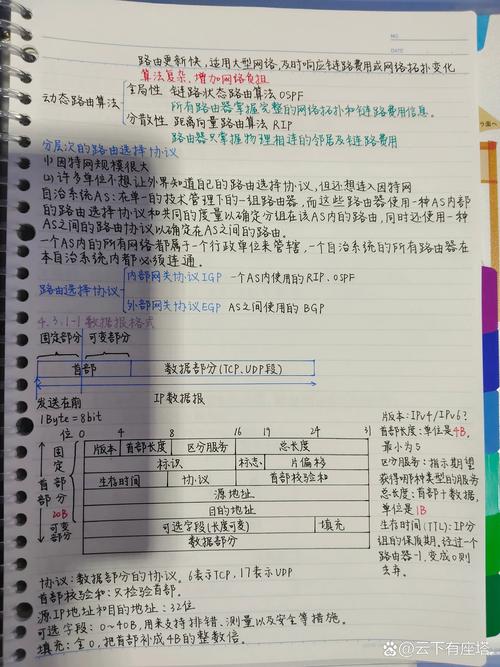 NO.
DATE
路由更新快，适用大型网络，及时响应链路费用或网络拓扑变化
算法复杂，增加网络负担
动态路由算法
全局性 链路状态路由算法 OSPF
所有路由器掌握完整的网络拓扑和链路费用信息。
分散性 距离向量路由算法 RIP
路由器只掌握物理相连的邻居及链路费用
分层次的路由选择协议
(1)因特网规模很大
(2)许多单位不想让外界知道自己的路由选择协议，但还想连入因特网
自治系统AS：在单一的技术管理下的一组路由器，而这些路由器使用一种AS内部
的路由选择协议和共同的度量以确定分组在该AS内的路由，同时还使用一种
AS之间的路由协议以确定在AS之间的路由。
一个AS内的所有网络都属于一个行政单位来管辖，一个自治系统的所有路由器在
本自治系统内都必须连通。
路由选择协议
内部网关协议IGP 一个AS内使用的RIP、OSPF
外部网关协议EGP AS之间使用的BGP
4.3.1-1数据报格式
固定部分 可变部分
首部 数据部分(TCP、UDP段)
发送在前 IP数据报
1Byte=8bit
位 0 4 8 16 19 24 31
版本 首部长度 区分服务 总长度
标识 标志 片偏移
生存时间 协议 首部校验和
源地址
目的地址
可选字段(长度可变) 填充
数据部分
固定部分
首部
20B
可变部分
版本：IPv4/IPv6?
首部长度：单位是4B，
最小为5
区分服务：指示期望
获得哪种类型的服务
总长度：首部+数据，
单位是1B
生存时间(TTL)：IP分
组的保质期。经过一个
路由器-1，变成0则
丢弃。
协议：数据部分的协议。6表示TCP，17表示UDP
首部校验和：只检验首部。
源IP地址和目的地址：32位
可选字段：0~40B，用来支持排错、测量以及安全等措施。
填充：全0，把首部补成4B的整数倍。
@云下有座塔